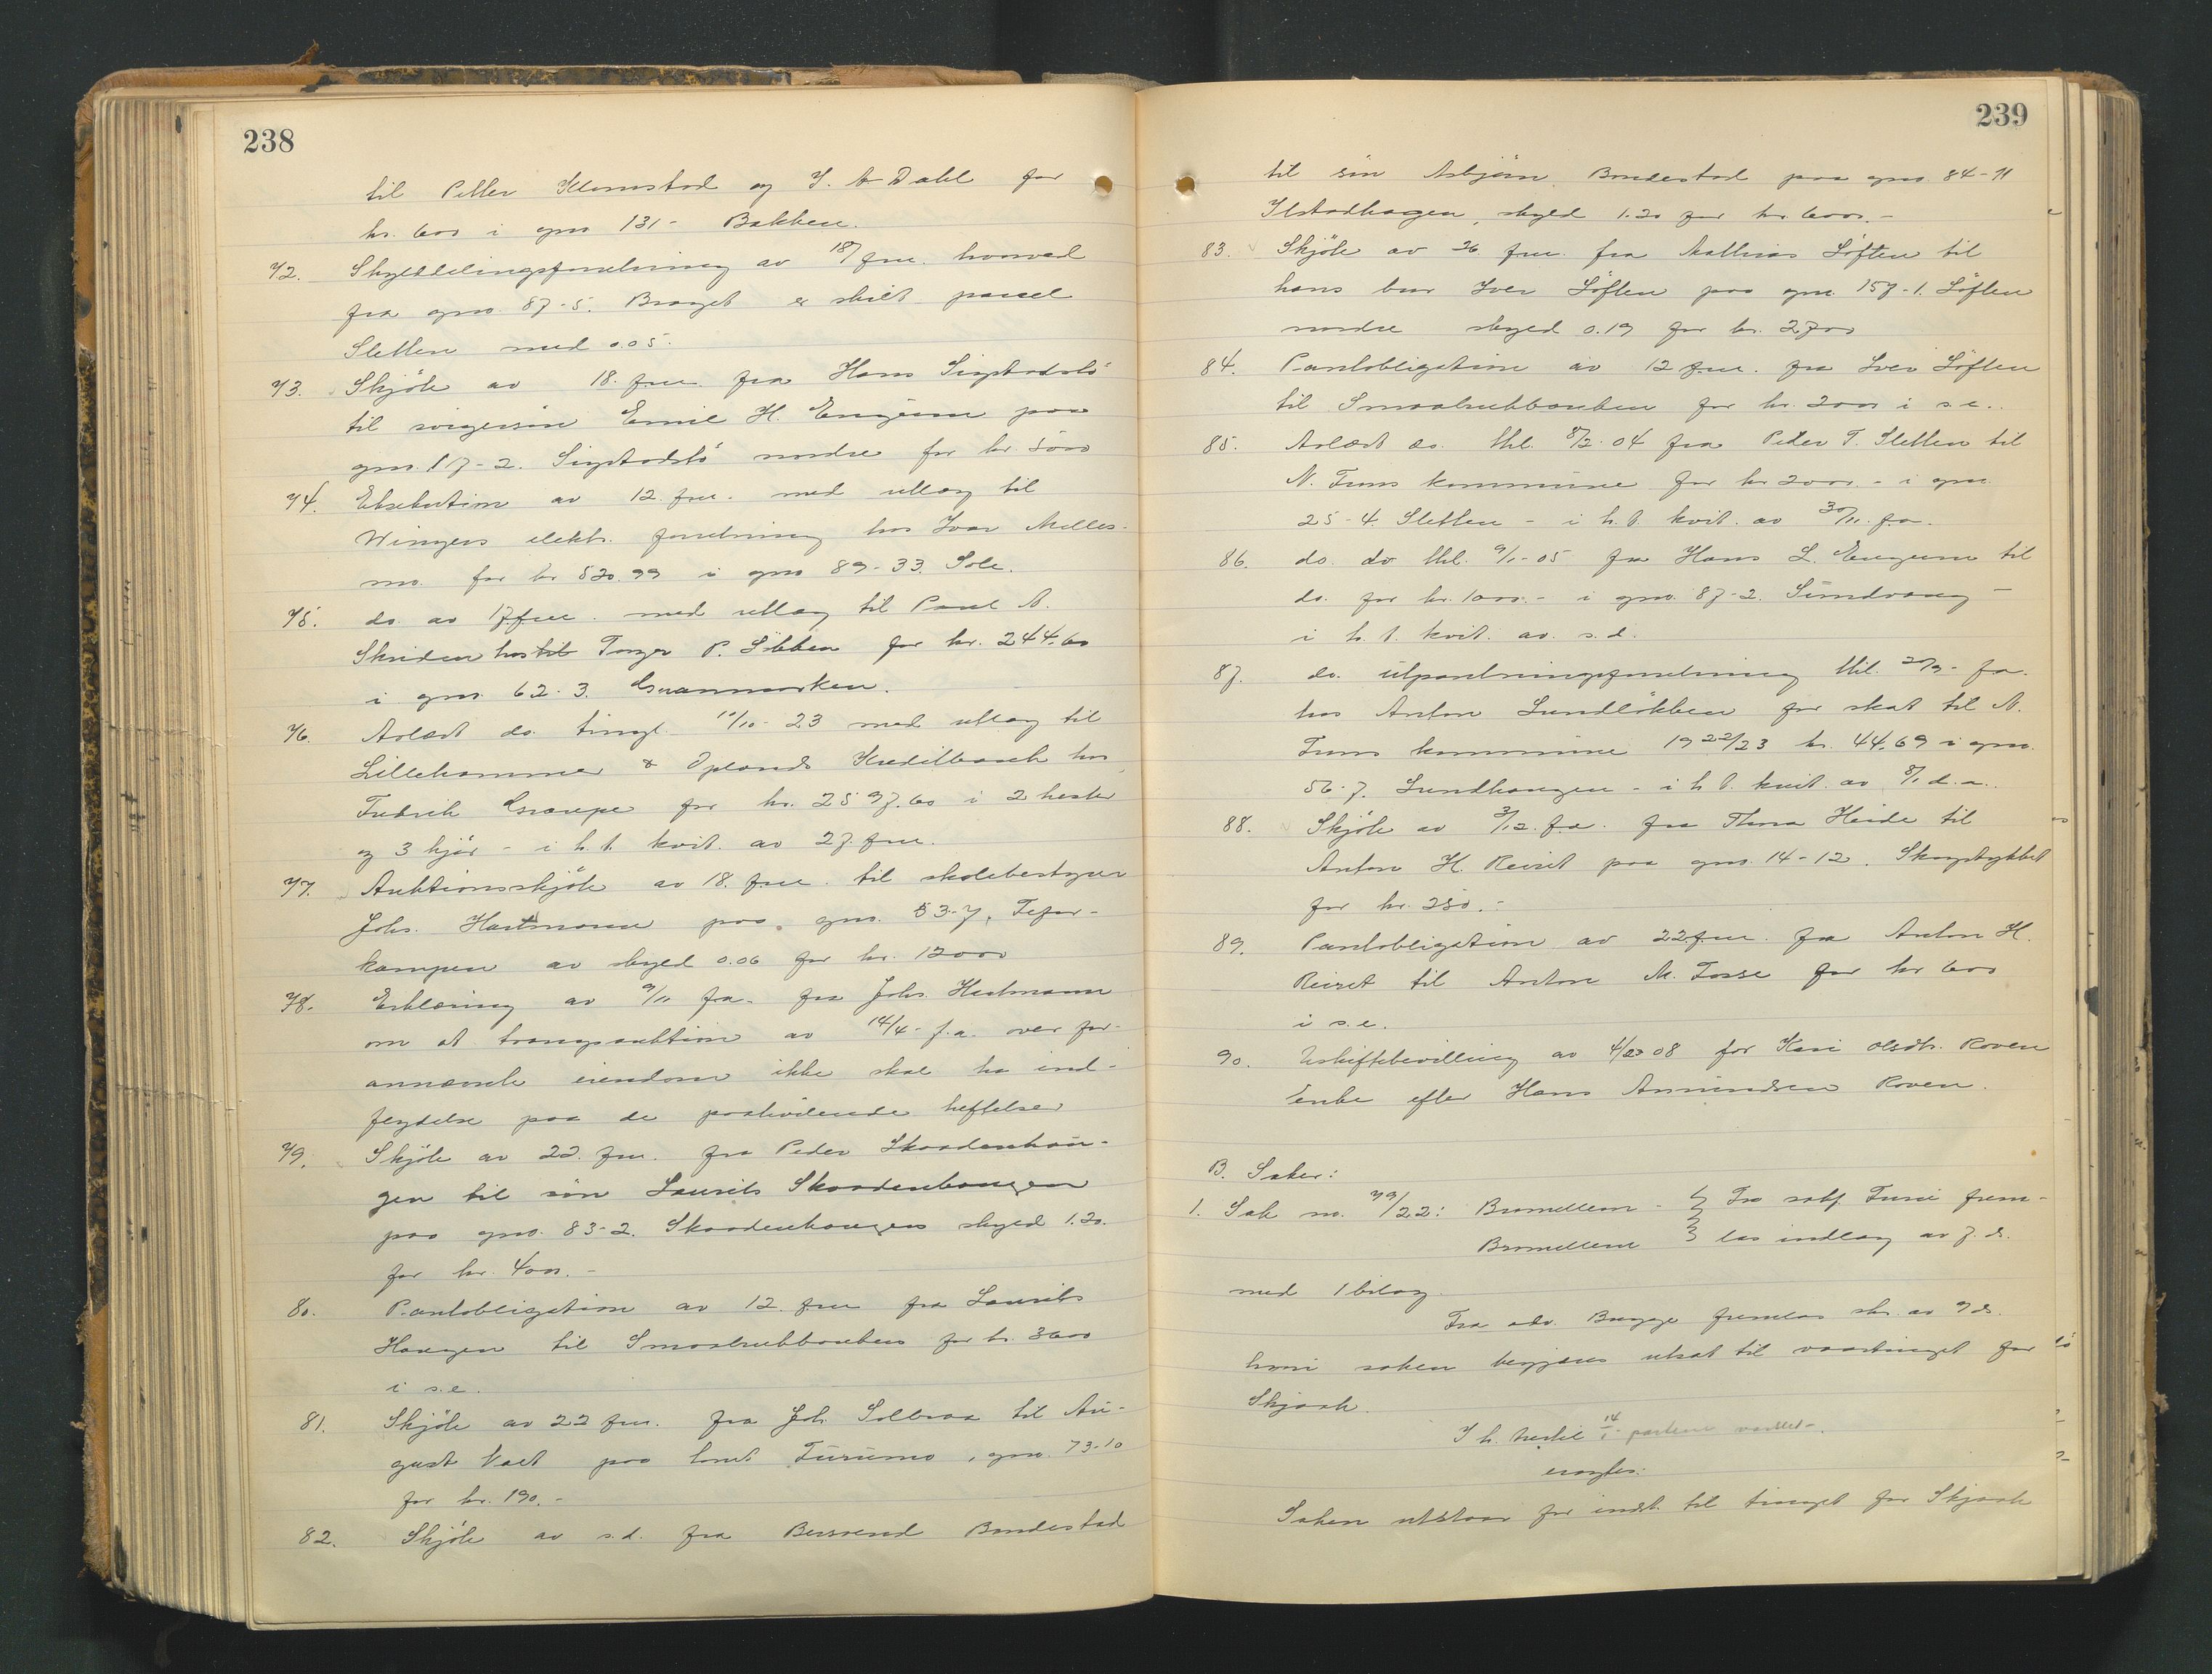 238
til Petter Klomstad og J. A Dahl for
kr. 600 i gno 131- Bakken.
72. Skylddelingsforretning av 18/ fm. hvorved
fra gno. 87-5. Braget er skilt parcel
Sletten med 0.05.
73. Skjøte av 18. fm. fra Hans Sigstadslö
til svigersøn Emil H. Engum paa
gno. 17-2. Sigstadslö nordre for kr.
74. Eksekution av 12. fm. med utlæg til
Wingers elektr. forretning hos Ivar Melles-
mo. for kr 520.99 i gno 89-33. Sole.
75. do. av 17. fm. med utlæg til Paul A.
Skriden hos Torger P. Løkken for kr. 244.60
i gno. 62-3. Granmarken.
76. Avlæst do. tingl. 11/10-23 med utlæg til
Lillehammer & Oplands Kreditbank hos
Fredrik Graupe for kr. 2597.60 i 2 hester
og 3 kjør - i h. t. kvit. av 27. fm.
77. Auktionsskjøte av 18. fm. til skolebestyrer
Johs. Hartmann paa gno. 53-7,
kampen av skyld 0.06 for kr. 12000
78. Erklæring av 9/11 fa. fra Johs. Hartmann
om at tvangsauktion av 14/4- f.a. over for-
annævnte eiendom ikke skal ha ind-
flydelse paa de paahvilende heftelser
79. Skjøte av 22. fm. fra Peder Skaadenhau-
gen til søn Laurits Skaadenhaugen
paa gno. 83-2. Skaadenhaugen skyld 1.20.
for kr. 4000.-
80. Pantobligation av 12. fm fra Laurits
Haugen til Smaabrukbanken for kr. 3600
i s.e.
81. Skjøte av 22 fm. fra Joh. Solbraa til Au-
gust Vaet paa tomt Furumo, gno. 73-10
for kr. 190.-
82. Skjøte av s.d. fra Bersvend Bondestad
239
til søn Asbjørn Bondestad paa gno. 84-11
Ilstadhagen, skyld 1.20 for kr. 6000.-
83. Skjøte av 26 fm. fra Mathias Løften til
hans bror Iver Løften paa gno. 157-1. Løften
nordre skyld 0.19 for kr. 2700
84. Pantobligation av 12 fm. fra Iver Løften
til Smaabrukbanken for kr. 2000 i s.e.
85. Avlæst do. thl. 8/2.04 fra Peder T. Sletten til
N. Frons kommune for kr 2000.- i gno.
25-4. Sletten - i h. t. kvit. av 30/11. f.a.
86. do. do thl. 9/1-05 fra Hans L. Engum til
do. for kr. 1000.- i gno. 87-2. Sundvang -
i h. t. kvit. av. s.d.
87. do. utpantningsforretning thl. 20/9- fa.
hos Anton Lundløkken for skat til N.
Frons kommune 1922/23 kr. 44.69 i gno.
56-7. Lundhaugen - i h. t. kvit. av 8/1 d.a..
88. Skjøte av 3/12. f.a. fra Thora Heide til
Anton H. Reiret paa gno. 14-12. Skogstykket
for kr. 250.-
89. Pantobligation av 22. fm. fra Anton H.
Reiret til Anton M. Fosse for kr 600
i s.e.
90. Uskiftebevilling av 4/2 08 for Kari Olsdtr. Roven
Enke efter Hans Amundsen Roven.
B. Saker:
1. Sak no. 79/22: Bromellem - Fra sakf. Furu frem-
Bromellem las indlæg av 7. ds.
med 1 bilag.
Fra adv. Bugge fremlas skr. av 9 ds.
hvori saken begjæres utsat til vaartinget for
Skjaak.
I h. hertil 14/1 partene varslet.
eragtes:
Saken utstaar for indst. til tinget for Skjaak